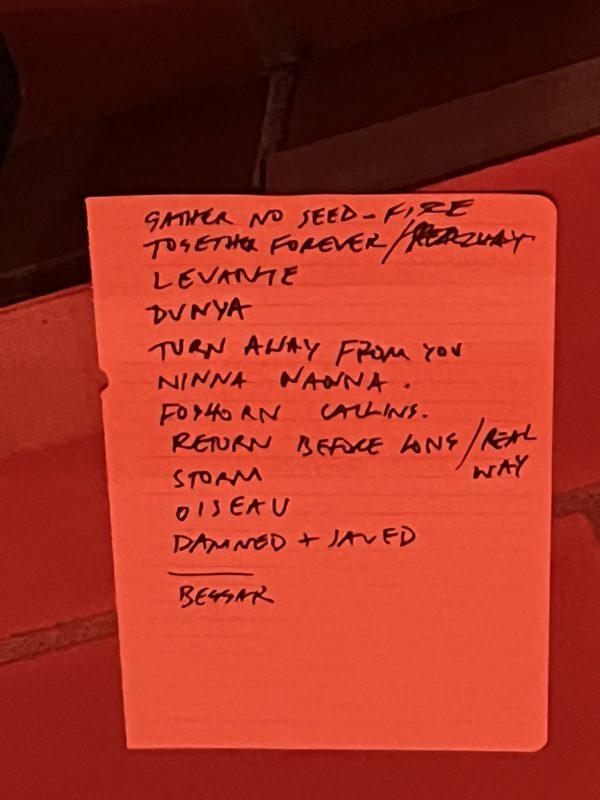 GATHER NO SEED - FIRE
TOGETHER FOREVER / REALWAY
LEVANTE
DUNYA
TURN AWAY FROM YOU
NINNA NANNA.
FOGHORN CALLING.
RETURN BEFORE LONG / REAL
WAY
STORM
OISEAU
DAMNED + SAVED
BEGGAR